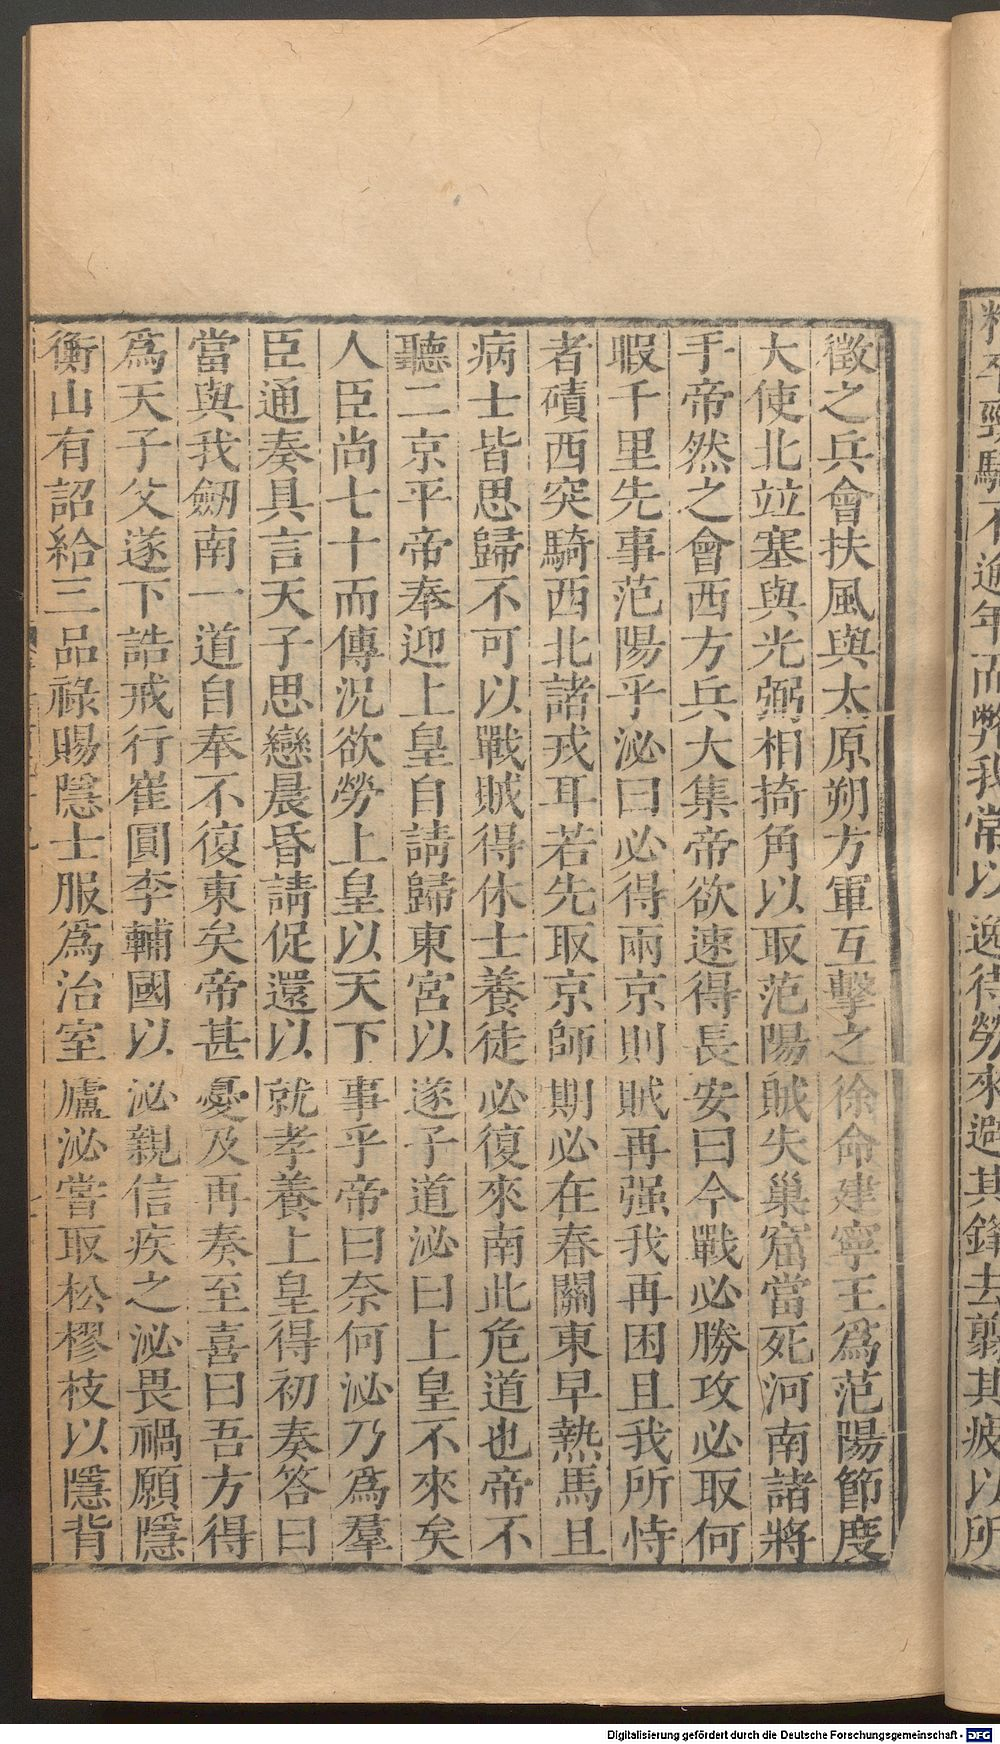 精卒勁騎不逾年而弊我常以逸待勞來避其鋒去翦其疲以所
徵之兵會扶風與太原朔方軍互擊之徐命建寧王爲范陽節度
大使北竝塞與光弼相掎角以取范陽賊失巢窟當死河南諸將
手帝然之會西方兵大集帝欲速得長安曰今戰必勝攻必取何
暇千里先事范陽乎泌曰必得兩京則賊再强我再困且我所恃
者磧西突騎西北諸戎耳若先取京師期必在春關東早熱馬且
病士皆思歸不可以戰賊得休士養徒必復來南此危道也帝不
聽二京平帝奉迎上皇自請歸東宮以遂子道泌曰上皇不來矣
人臣尚七十而傳况欲勞上皇以天下事乎帝曰奈何泌乃爲羣
臣通奏具言天子思戀晨昏請促還以就孝養上皇得初奏答曰
當與我劒南一道自奉不復東矣帝甚憂及再奏至喜曰吾方得
爲天子父遂下誥戒行崔圓李輔國以泌親信疾之泌畏禍願隱
衡山有詔給三品祿賜隱士服爲治室廬泌嘗取松樛枝以隱背
Digitalisierung gefördert durch die Deutsche Forschungsgemeinschaft - DFG